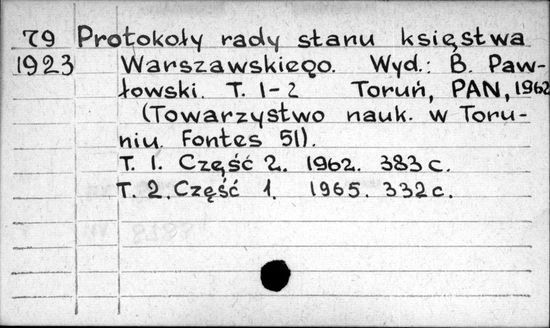 79 Protokoły rady stanu księstwa
1923 Warszawskiego. Wyd.: B. Paw-
łowski. T. 1-2 Toruń, PAN, 1962
(Towarzystwo nauk. w Toru-
niu. Fontes 51).
T. 1. Część 2. 1962. 383 c.
T. 2. Część 1. 1965. 332 c.